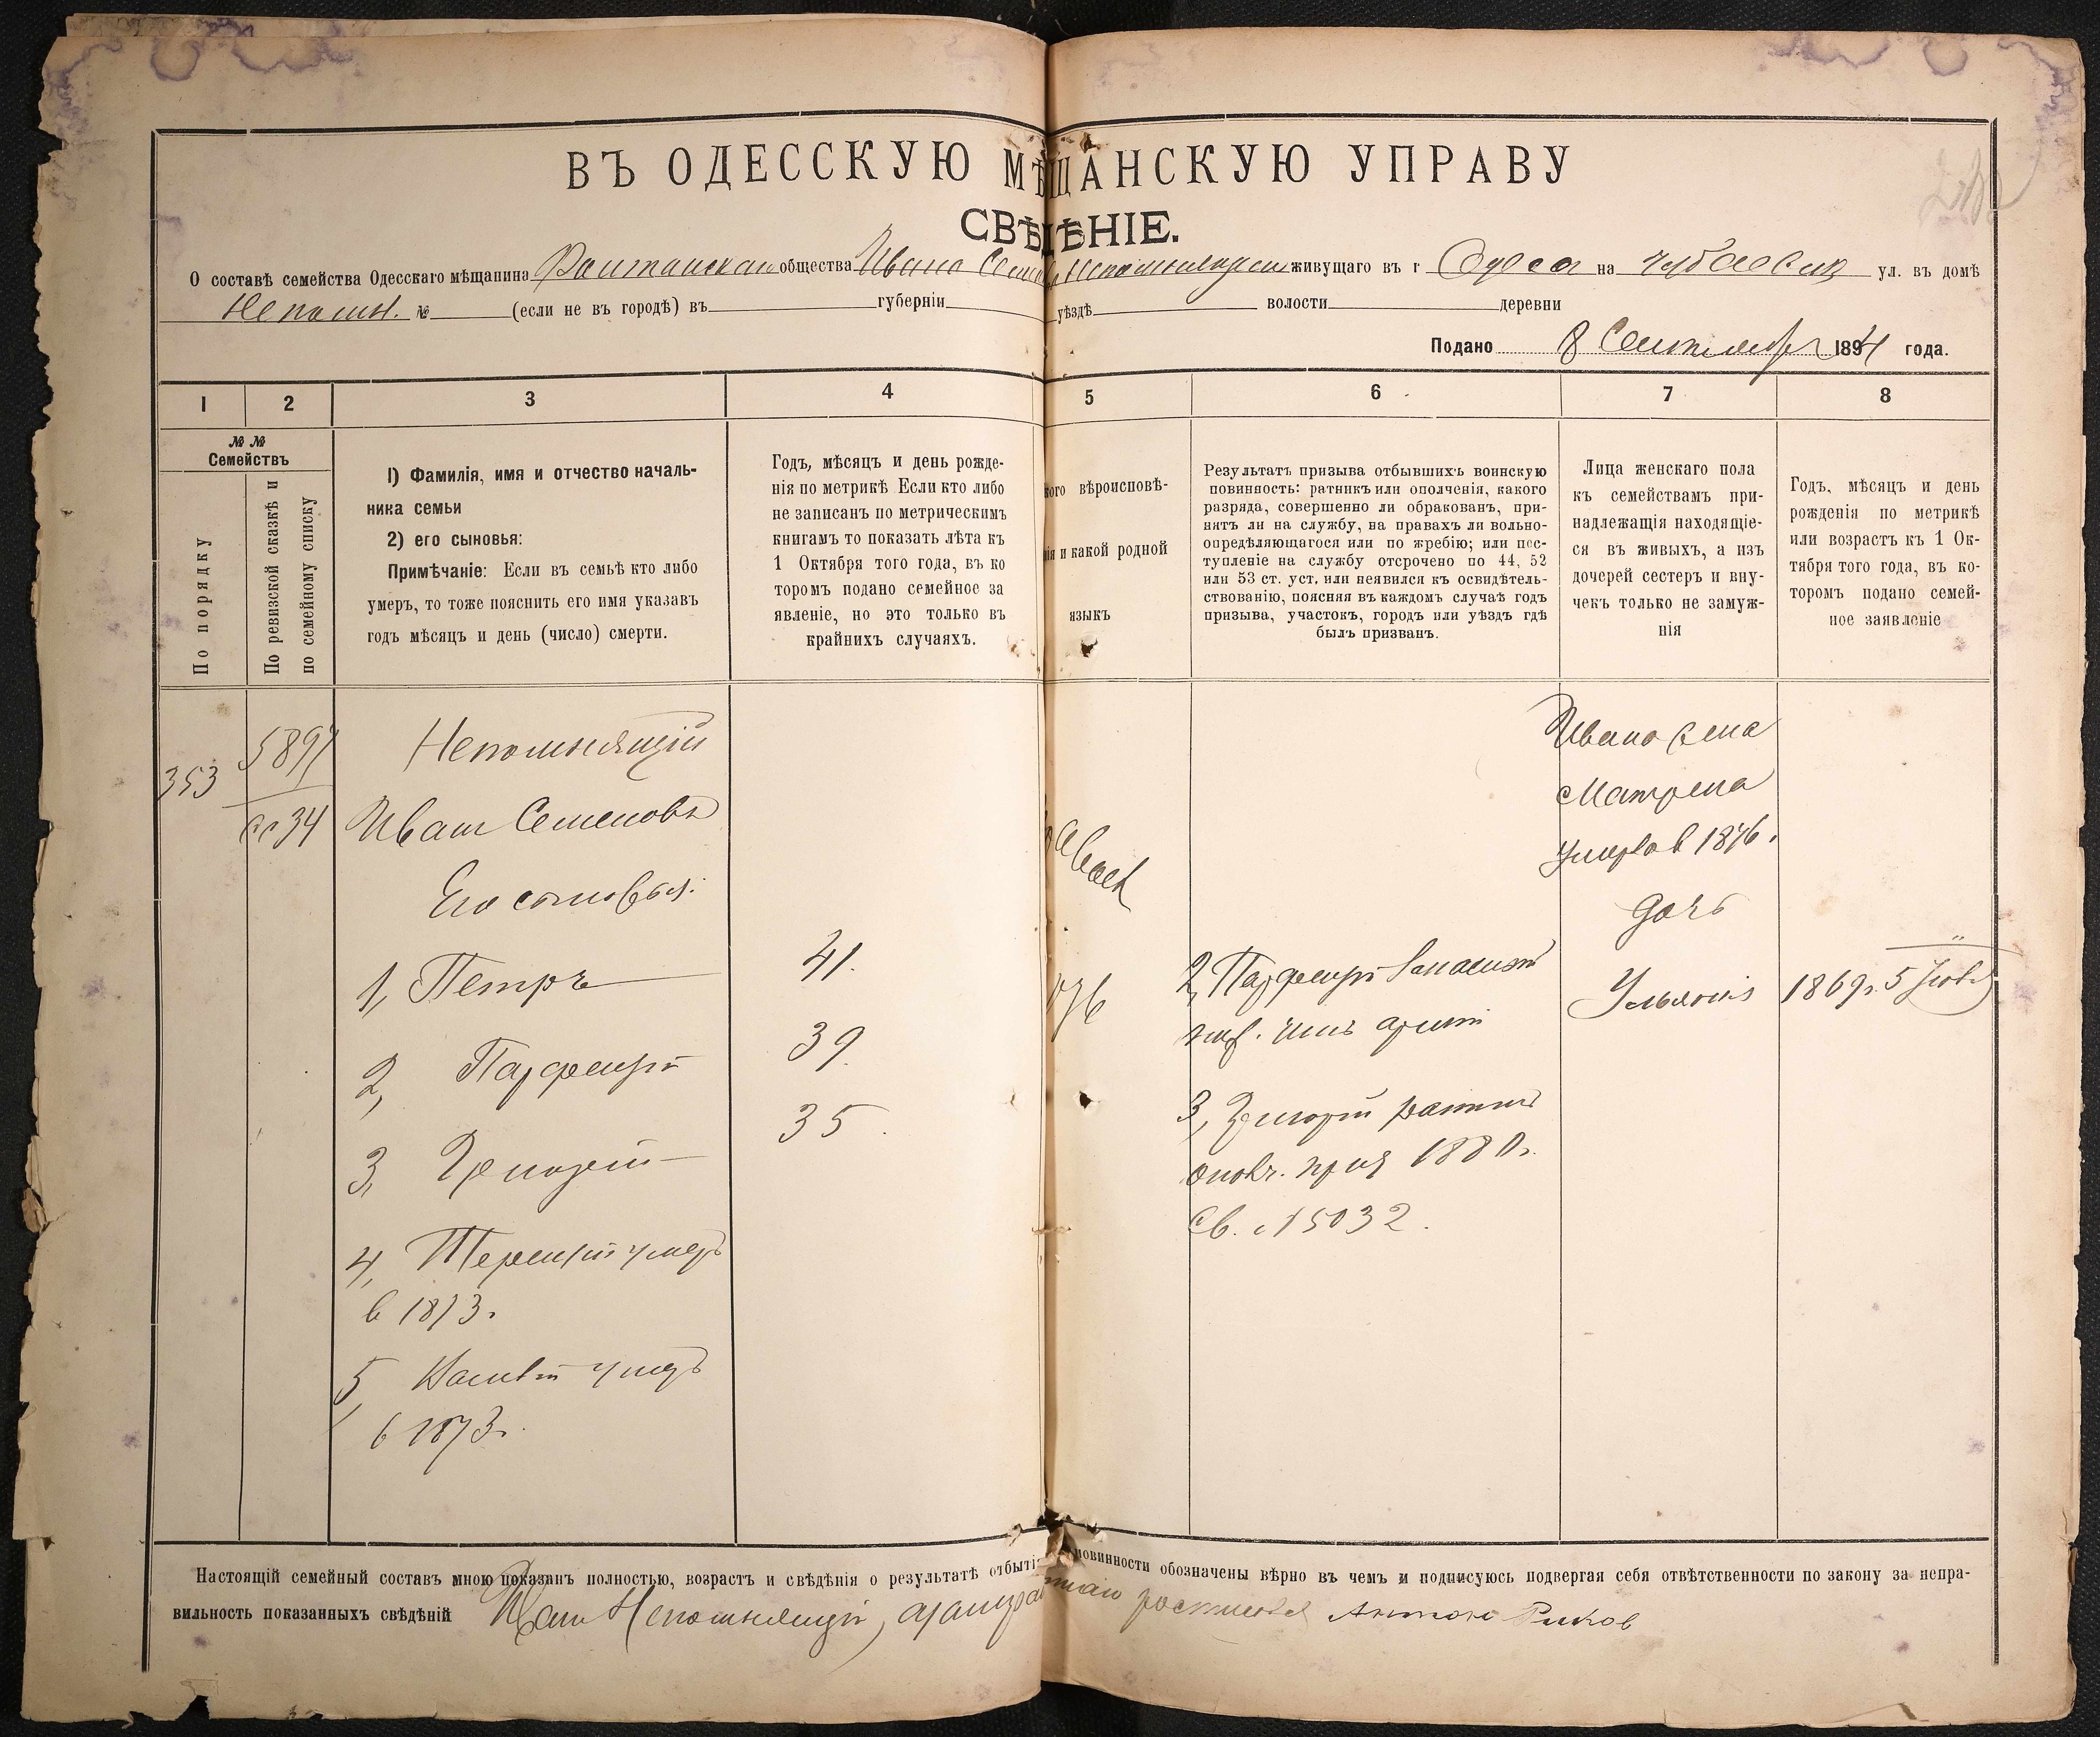 ВЪ ОДЕССКУЮ МѢЩАНСКУЮ УПРАВУ
СВѢДѢНІЕ.
О составѣ семейства Одесскаго мѣщанина Фонтанскаго общества Ивана Семенова Непомнящаго живущаго въ г Одесса на ул. въ домѣ
Непомн. № (если не въ городѣ) въ губерніи уѣздѣ волости деревни
Подано 8 Сентября 1894 года.
1 2 3 4 5 6 7 8
№ №
Семействъ
По порядку
По ревизской сказкѣ и
по семейному списку
1) Фамилія, имя и отчество началь-
ника семьи
2) его сыновья:
Примѣчаніе: Если въ семьѣ кто либо
умеръ, то тоже пояснить его имя указавъ
годъ мѣсяцъ и день (число) смерти.
Годъ, мѣсяцъ и день рожде-
нія по метрикѣ Если кто либо
не записанъ по метрическимъ
книгамъ то показать лѣта къ
1 Октября того года, въ ко
торомъ подано семейное за
явленіе, но это только въ
крайнихъ случаяхъ.
кого вѣроисповѣ-
нія и какой родной
языкъ
Результатъ призыва отбывшихъ воинскую
повинность: ратникъ или ополченія, какого
разряда, совершенно ли обракованъ, при-
нятъ ли на службу, на правахъ ли вольно-
опредѣляющагося или по жребію; или пос-
тупленіе на службу отсрочено по 44, 52
или 53 ст. уст, или неявился къ освидѣтель-
ствованію, поясняя въ каждомъ случаѣ годъ
призыва, участокъ, городъ или уѣздъ гдѣ
былъ призванъ.
Лица женскаго пола
къ семействамъ при-
надлежащія находящіе-
ся въ живыхъ, а изъ
дочерей сестеръ и вну-
чекъ только не замуж-
нія
Годъ, мѣсяцъ и день
рожденія по метрикѣ
или возрастъ къ 1 Ок-
тября того года, въ ко-
торомъ подано семей-
ное заявленіе
353
5897
сс 34
Непомнящій
Иванъ Семеновъ
Его сыновья:
1, Петръ
2, Парфентій
3, Григорій
4, Терентій умеръ
в 1873г.
5, умеръ
в 1873г.
41.
39.
35.
2, Парфентій запасной
3, Григорій ратникъ
ополч. приз 1880г.
Св. 15032.
Ивана жена
Матрена
умерла в 1876г.
дочь
Ульяна
1869г. 5
Настоящій семейный составъ мною показанъ полностью, возрастъ и свѣдѣнія о результатѣ отбытія повинности обозначены вѣрно въ чемъ и подписуюсь подвергая себя отвѣтственности по закону за непра-
вильность показанныхъ свѣдѣній Иван Непомнящій, росписался Антон Рыков